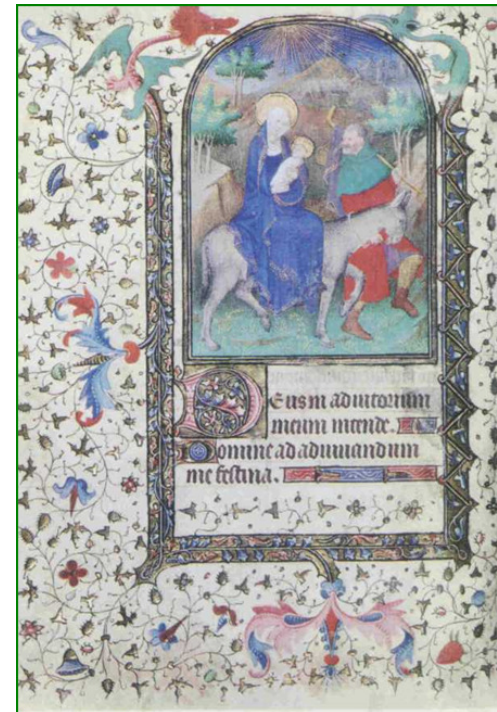 Deus in adiutorium
meum intende.
Domine ad adiuuandum
me festina.